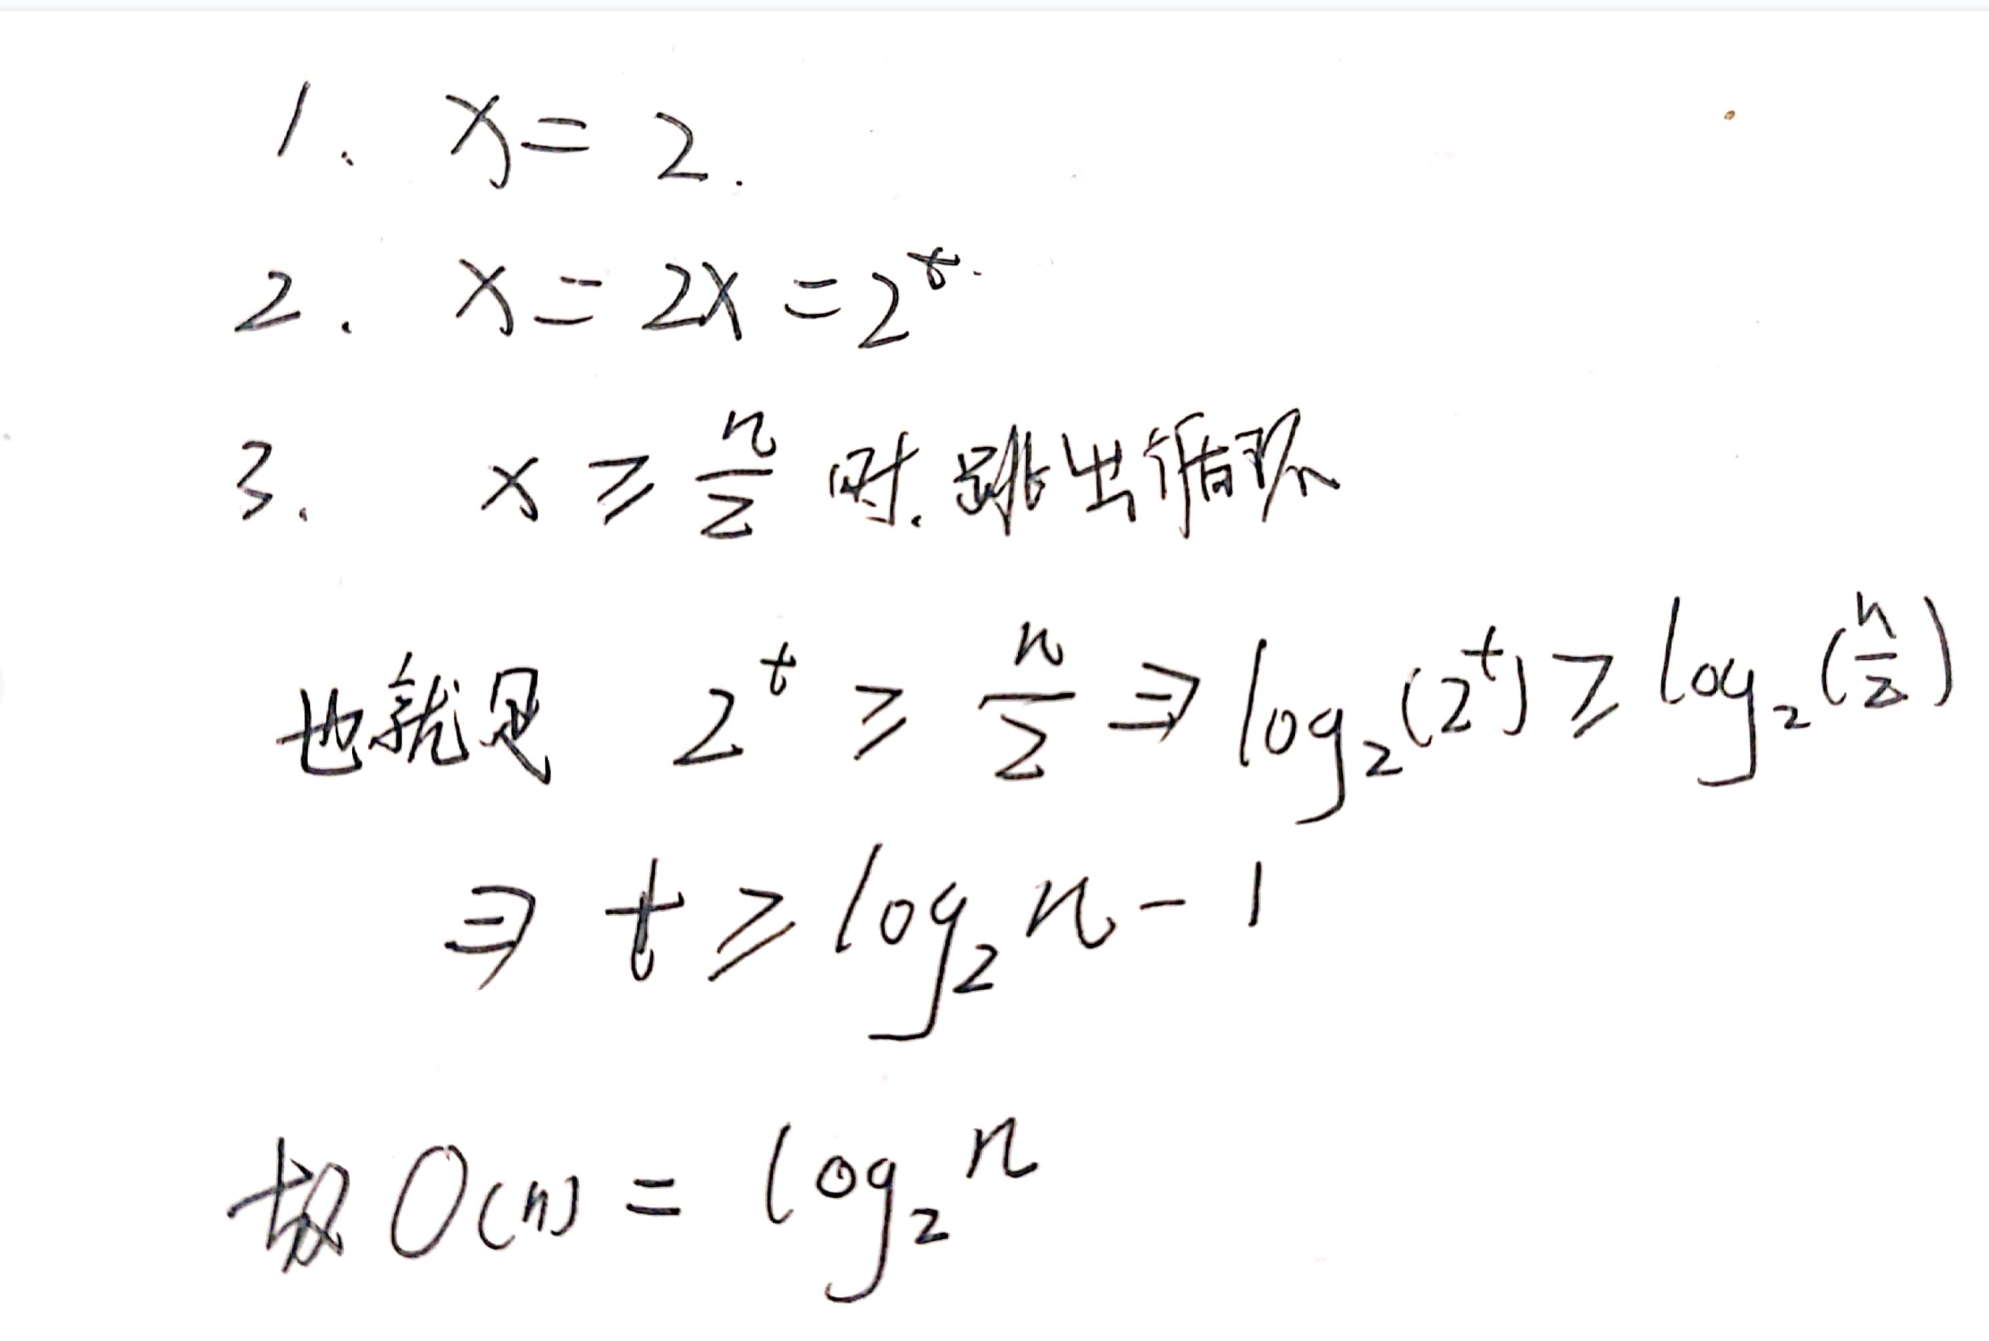 1. x = 2.
2. x = 2x = 2^t.
3. x ≥ n/2 时.跳出循环
也就是 2^t ≥ n/2 ⇒ log₂(2^t) ≥ log₂(n/2)
⇒ t ≥ log₂n - 1
故 O(n) = log₂n